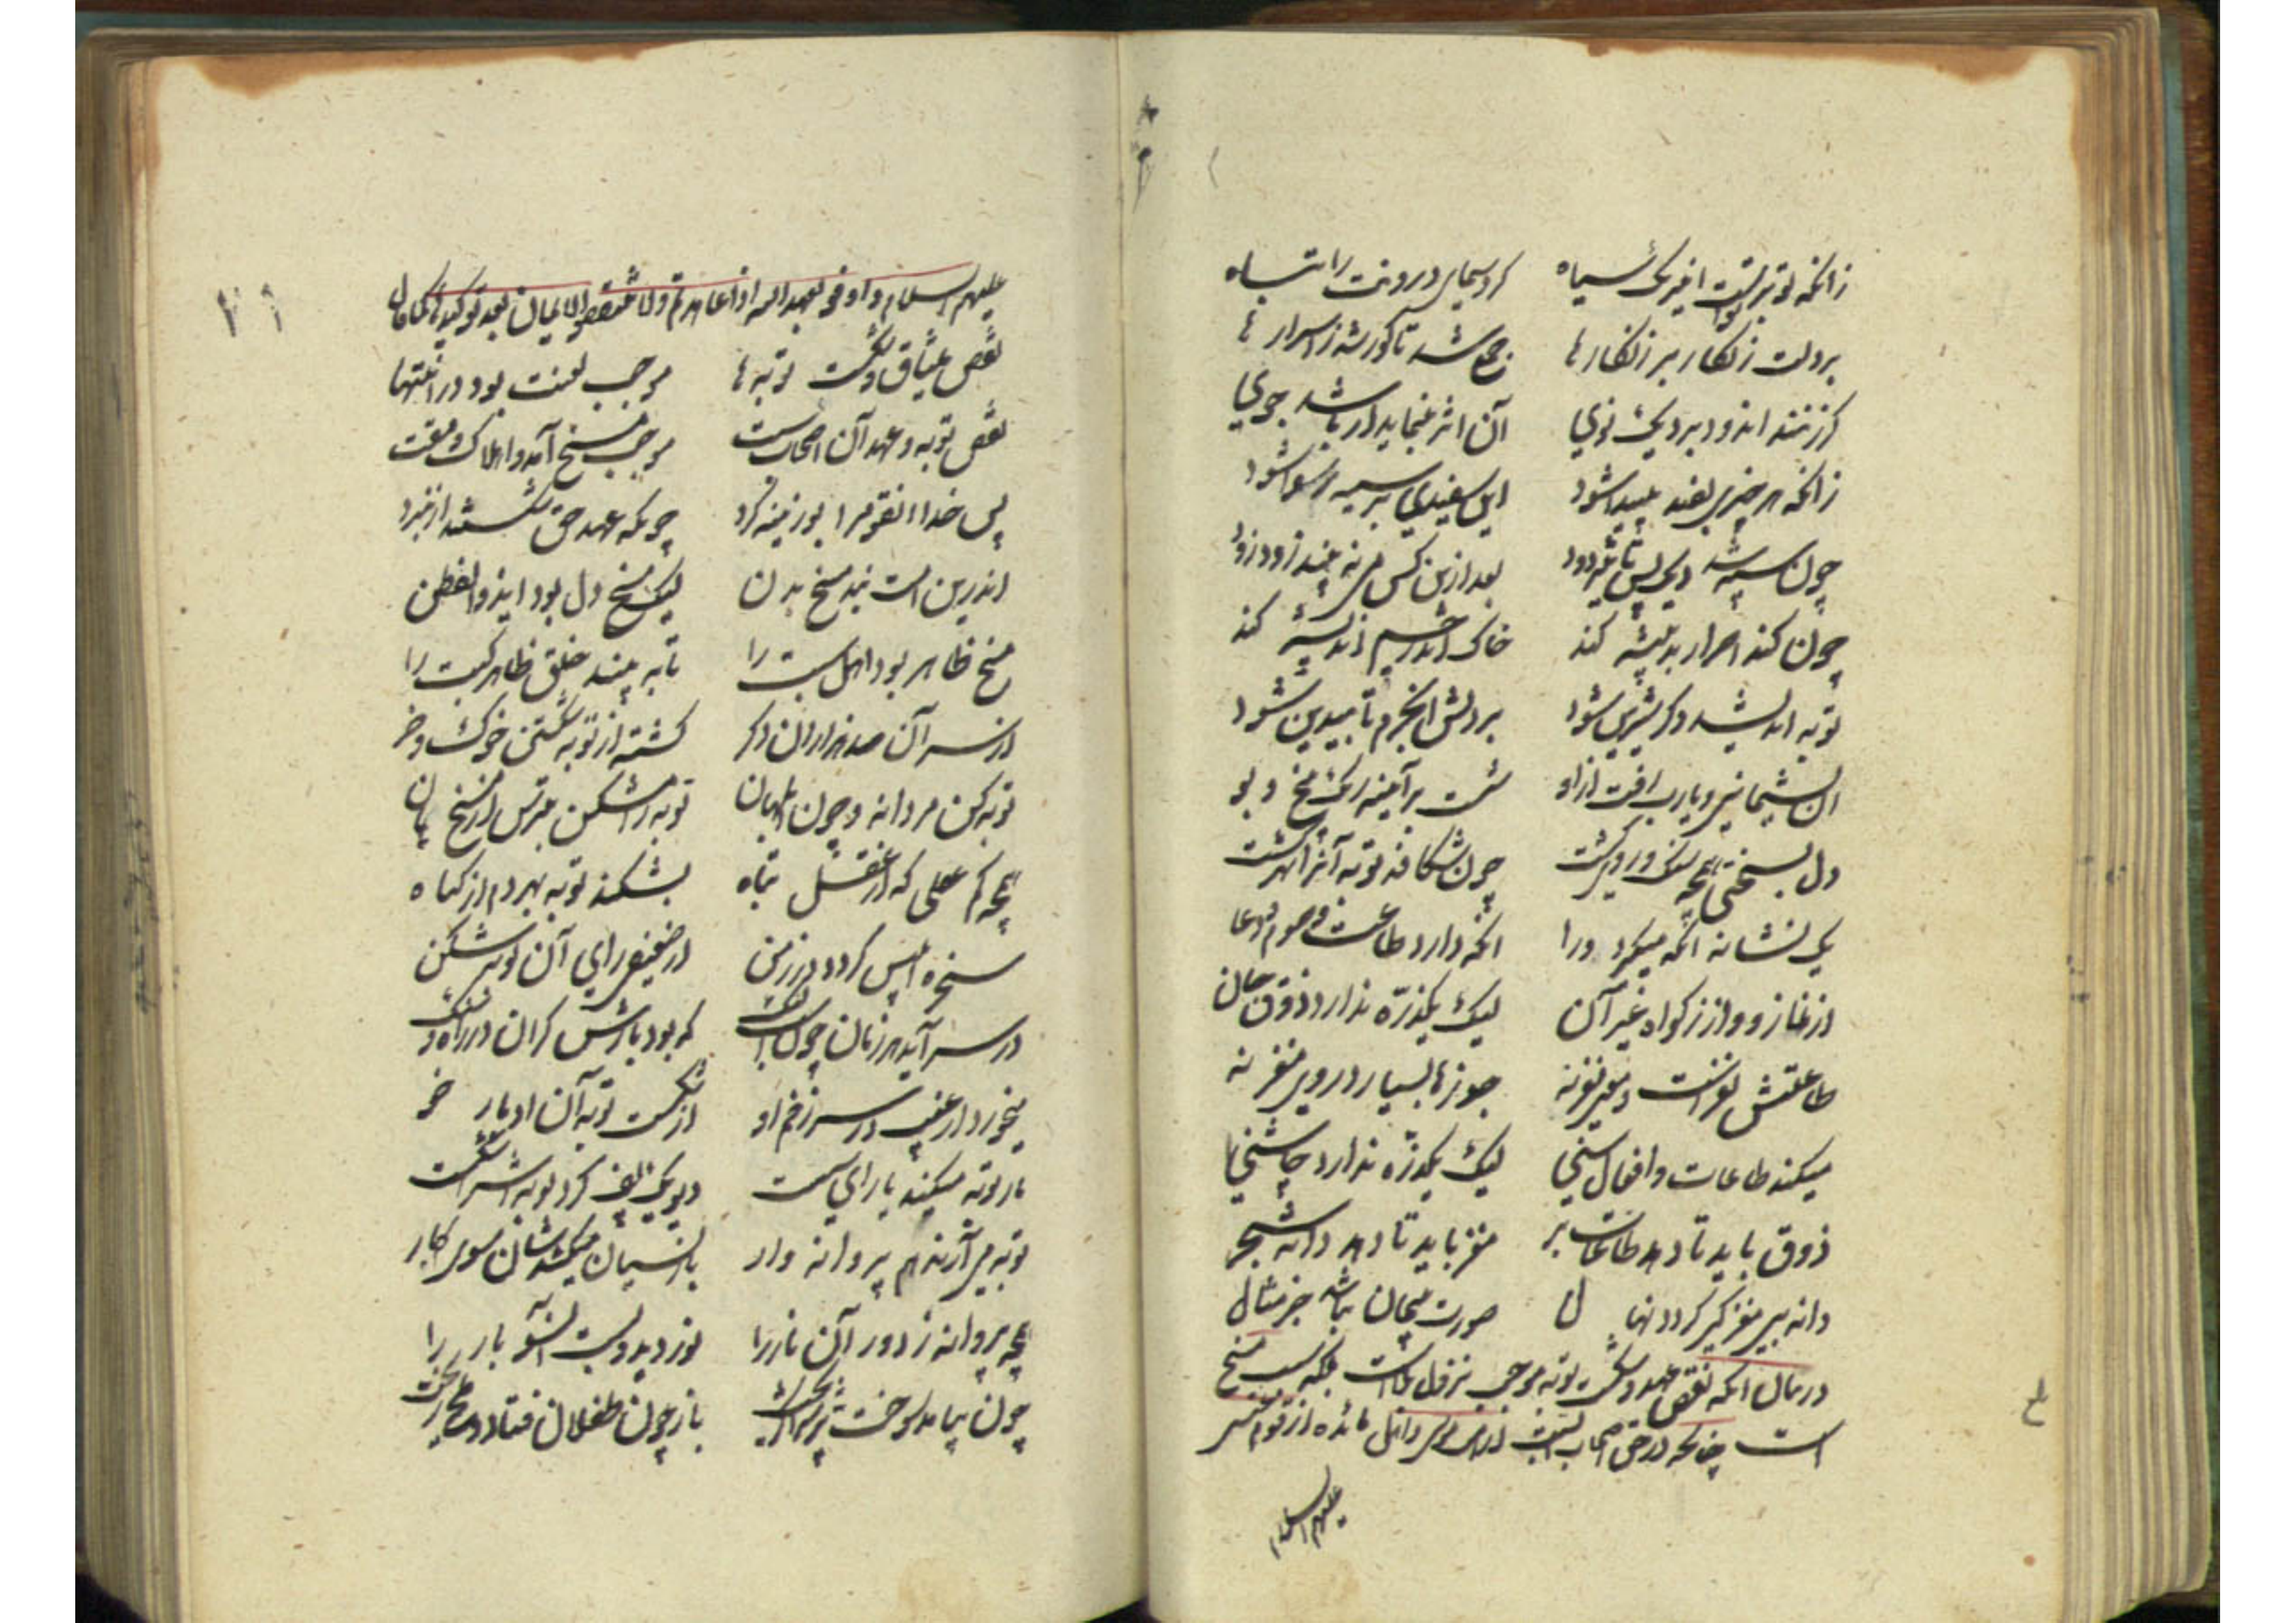 زانکه تو بر تو است این ریک سیاه کرد سیمای درونت را تباه
بر دلت زنکار بر زنکارها جمع شد تا کور شد ز اسرارها
کر زنند اندود بر دیک نوی آن اثر بنماید ار باشد جوی
زانکه هر چیزی بضد پیدا شود این سفیدی بر سیه رسوا شود
چون سیه شد دیک پس تاثیر دود بعد ازین کس می نه بیند زود زود
چون کند اصرار بد پیشه کند خاک اندر چشم اندیشه کند
توبه اندیشد دکر شیرین شود بر دلش آن جرم تا بیدین شود
آن پشیمانی و یارب رفت از او شست بر آیینه زنک پنج تو
دل بسختی همچو سنک و روی کشت چون شکافد توبه آنرا بهر کشت
یک نشانه آنکه میکیرد ورا آنکه دارد طاعت و صوم و دعا
از نماز و از زکوة و غیر آن لیک یکذره ندارد ذوق جان
طاعتش نغزست و معنی نغز نه جوزها بسیار در وی مغز نه
میکند طاعات و افعال سنی لیک یکذره ندارد چاشنی
ذوق باید تا دهد طاعات بر مغز باید تا دهد دانه شجر
دانه بی مغز کی کردد نهال صورت بیجان نباشد جز مثال
در بیان آنکه نقض عهد و شکست توبه موجب نزول بلاست بلکه سبب مسخ
است چنانکه در حق اصحاب السبت و اهل مائده از قوم عیسی
علیهم السلام
۲۶
علیهم السلام و اوفوا بعهد الله اذا عاهدتم ولا تنقضوا الایمان بعد توکیدها
نقض میثاق و شکست توبه‌ها موجب لعنت بود در انتها
نقض توبه و عهد آن اصحاب سبت موجب مسخ آمد و اهلاک و مقت
پس خدا آنقوم را بوزینه کرد چونکه عهد حق شکستند از نبرد
اندرین امت نبد مسخ بدن لیک مسخ دل بود ای ذو الفطن
مسخ ظاهر بود اهل سبت را تا به بیند خلق ظاهر کبت را
از سر آن صد هزاران دکر کشته از توبه شکستن خوک و خر
توبه کن مردانه و چون ابلهان توبه را مشکن بترس از مسخ جان
همچو کم عقلی که از عقل تباه بشکند توبه بهر دم از کناه
سخره ابلیس کردد در زمن از ضعیفی رای آن توبه شکن
در سر آید هر زمان چون اسب لنک که بود بارش کران در راه سنک
میخورد از غیب در سر زخم او از شکست توبه آن ادبار خو
باز توبه میکند با رای سست دیو یک تف کرد توبه‌اش را شکست
توبه می آرند هم پروانه وار باز نسیان میکشدشان سوی کار
همچو پروانه ز دور آن نار را نور دید و بست آنسو بار را
چون بیامد سوخت پرش را کریخت باز چون طفلان فتاد و ملح ریخت